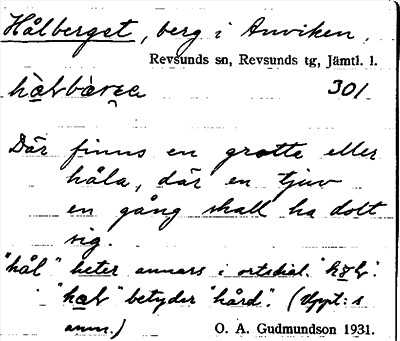 Hålberget, berg i Anviken,
Revsunds sn, Revsunds tg, Jämtl. l.
301
Där finns en grotta eller
håla, där en tjuv
en gång skall ha dolt
sig.
"hål" heter annars i ortsdial.
betyder "hård". (Uppt:s
anm.)
O. A. Gudmundson 1931.